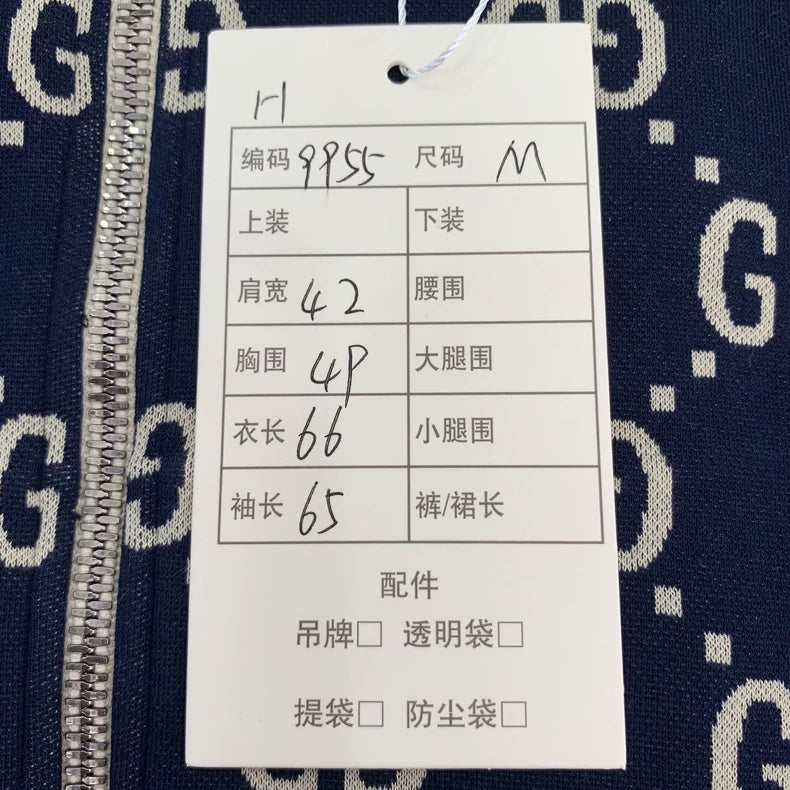 H
编码 9955 尺码 M
上装 下装
肩宽 42 腰围
胸围 49 大腿围
衣长 66 小腿围
袖长 65 裤/裙长
配件
吊牌□ 透明袋□
提袋□ 防尘袋□